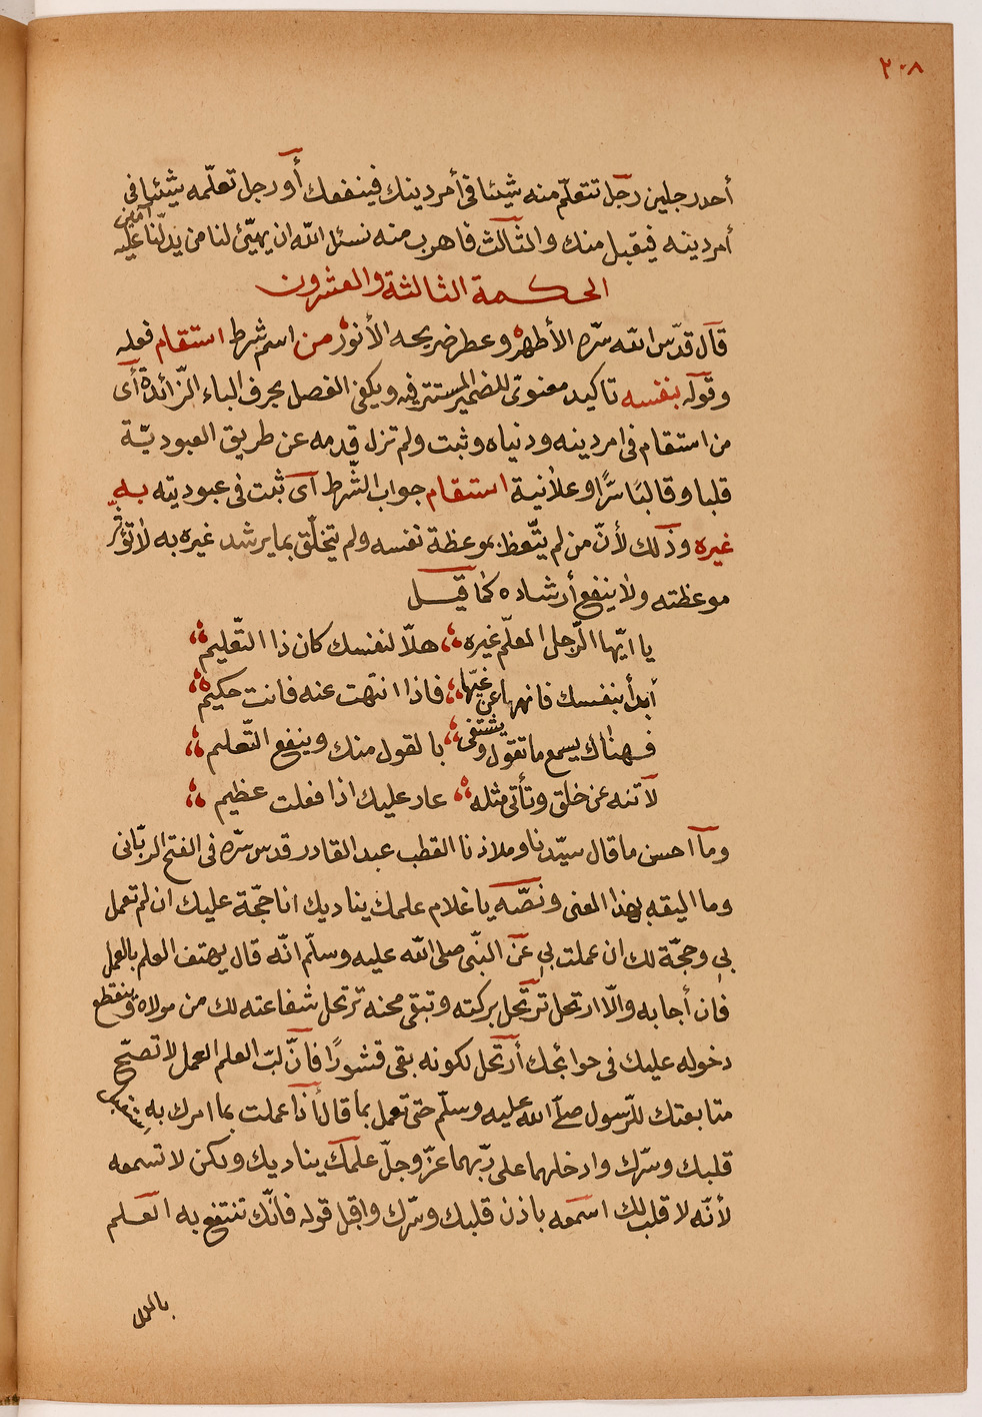 ٢٠٨
أحد رجلين رجل تتعلّم منه شيئا فى أمر دينك فينفعك أو رجل تعلّمه شيئا فى
أمر دينه فيقبل منك والثالث فاهرب منه نسئل اللّه ان يهيّئ لنا من يدلّنا عليه آمين
الحكمة الثالثة والعشرون
قال قدّس اللّه سرّه الأطهر وعطر ضريحه الأنور من اسم شرط استقام فعله
وقوله بنفسه تاكيد معنوىّ للضمير المستتر فيه ويكفى الفصل بحرف الباء الزّائدة أى
من استقام فى امر دينه ودنياه وثبت ولم تزل قدمه عن طريق العبوديّة
قلبا وقالبًا سرًّا وعلانية استقام جواب الشّرط اى ثبت فى عبوديته به
غيره وذلك لأنّ من لم يتّعظ بموعظة نفسه ولم يتخلّق بما يرشد غيره به لا تؤثّر
موعظته ولا ينفع أرشاده كما قيل
يا ايّها الرّجل المعلّم غيره هلّا لنفسك كان ذا التّعليم
أبدأ بنفسك فانهها عن غيّها فاذا انتهت عنه فانت حكيم
فهناك يسمع ما تقول ويشتفى بالقول منك وينفع التّعلم
لا تنه عن خلق وتأتى مثله عار عليك اذا فعلت عظيم
وما احسن ما قال سيّدنا وملاذنا القطب عبد القادر قدس سرّه فى الفتح الربّانى
وما اليقه بهذا المعنى ونصّه يا غلام علمك يناديك انا حجّة عليك ان لم تعمل
بى وحجّة لك ان عملت بى عن النبّى صلى اللّه عليه وسلّم انّه قال يهتف العلم بالعمل
فان أجابه والّا ارتحل ترتحل بركته وتبقى محنه ترتحل شفاعته لك من مولاه وينقطع
دخوله عليك فى حوائجك أرتحل لكونه بقى قشورًا فانّ لبّ العلم العمل لا تصحّ
متابعتك للرّسول صلّى اللّه عليه وسلّم حتى تعمل بما قال أذا عملت بما امرك به
قلبك وسرّك وادخلهما على ربّهما عزّ وجلّ علمك يناديك ولكن لا تسمعه
لأنّه لا قلب لك اسمعه باذن قلبك وسرّك واقبل قوله فانّك تنتفع به العلم
بالعمل